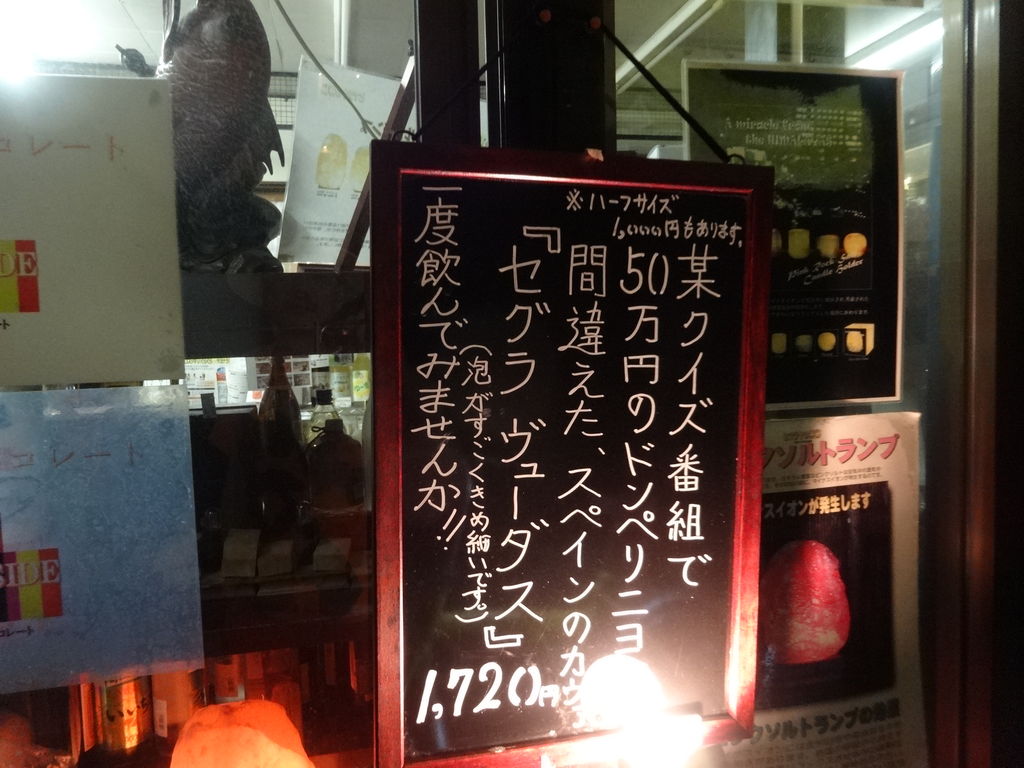 ※ハーフサイズ
1,111円もあります。
某クイズ番組で
50万円のドンペリニヨ
間違えた、スペインのカヴ
『セグラ ヴューダス』
(泡がすごくきめ細いです。)
一度飲んでみませんか!!
1,720円
コレート
DE
ート
コレート
SIDE
コレート
A miracle from
the Himalayas
Pink Rock
Candle Holder
クソルトランプ
スイオンが発生します
クソルトランプの効果